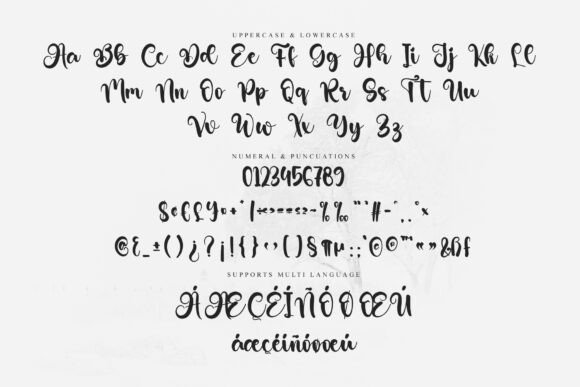 UPPERCASE & LOWERCASE
Aa Bb Cc Dd Ee Ff Gg Hh Ii Jj Kk Ll
Mm Nn Oo Pp Qq Rr Ss Tt Uu
Vv Ww Xx Yy Zz
NUMERAL & PUNCUATIONS
0123456789
SUPPORTS MULTI LANGUAGE
ÁÆÇÉÍÑÓ
áæçéíñó